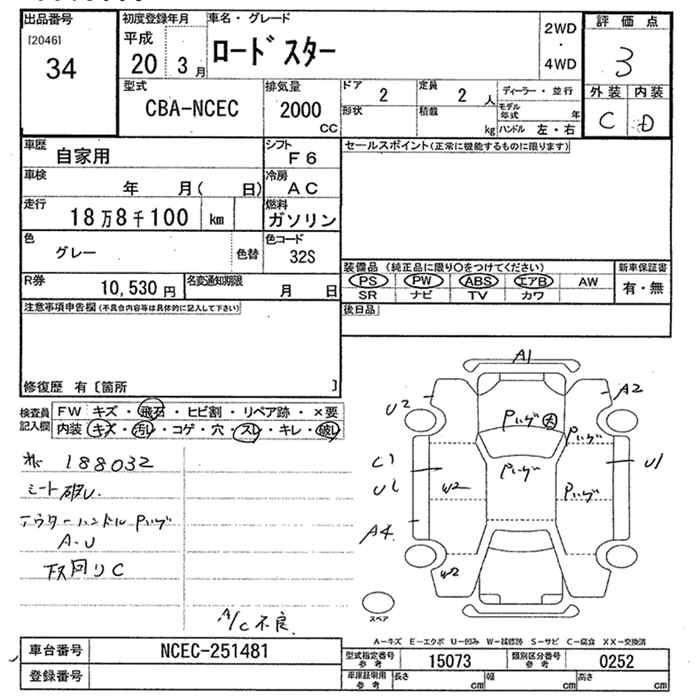 出品番号
[2046]
34
初度登録年月
平成
20 3月
車名・グレード
ロードスター
2WD
・
4WD
評価点
3
外装 内装
C D
型式
CBA-NCEC
排気量
2000
CC
ドア
2
定員
2 人
形状
積載
kg
ディーラー・並行
モデル年式 年
ハンドル 左・右
車歴
自家用
シフト
F6
車検
年 月( 日)
冷房
AC
走行
18万8千100 km
燃料
ガソリン
色
グレー
色替
色コード
32S
R券
10,530 円
名変通知期限
月 日
セールスポイント(正常に機能するものに限ります)
装備品 (純正品に限り○をつけてください)
PS PW ABS エアB AW
SR ナビ TV カワ
新車保証書
有・無
後日品
注意事項申告欄(不具合内容等は具体的に記入して下さい)
修復歴 有〔箇所 〕
検査員記入欄
FW キズ・飛石・ヒビ割・リペア跡・×要
内装 キズ・汚レ・コゲ・穴・スレ・キレ・破レ
188032
シート破レ
アウターハンドル Pハゲ
A-U
下回りC
A/C不良
A1
U2
A2
Pハゲ 大
Pハゲ
Pハゲ
C1
U1
W2
Pハゲ
U1
A4
W2
スペア
A-キズ E-エクボ U-凹み W-補修跡 S-サビ C-腐食 XX-交換済
車台番号
NCEC-251481
登録番号
型式指定番号 参考
15073
類別区分番号 参考
0252
車庫証明用 参考
長さ cm
幅 cm
高さ cm